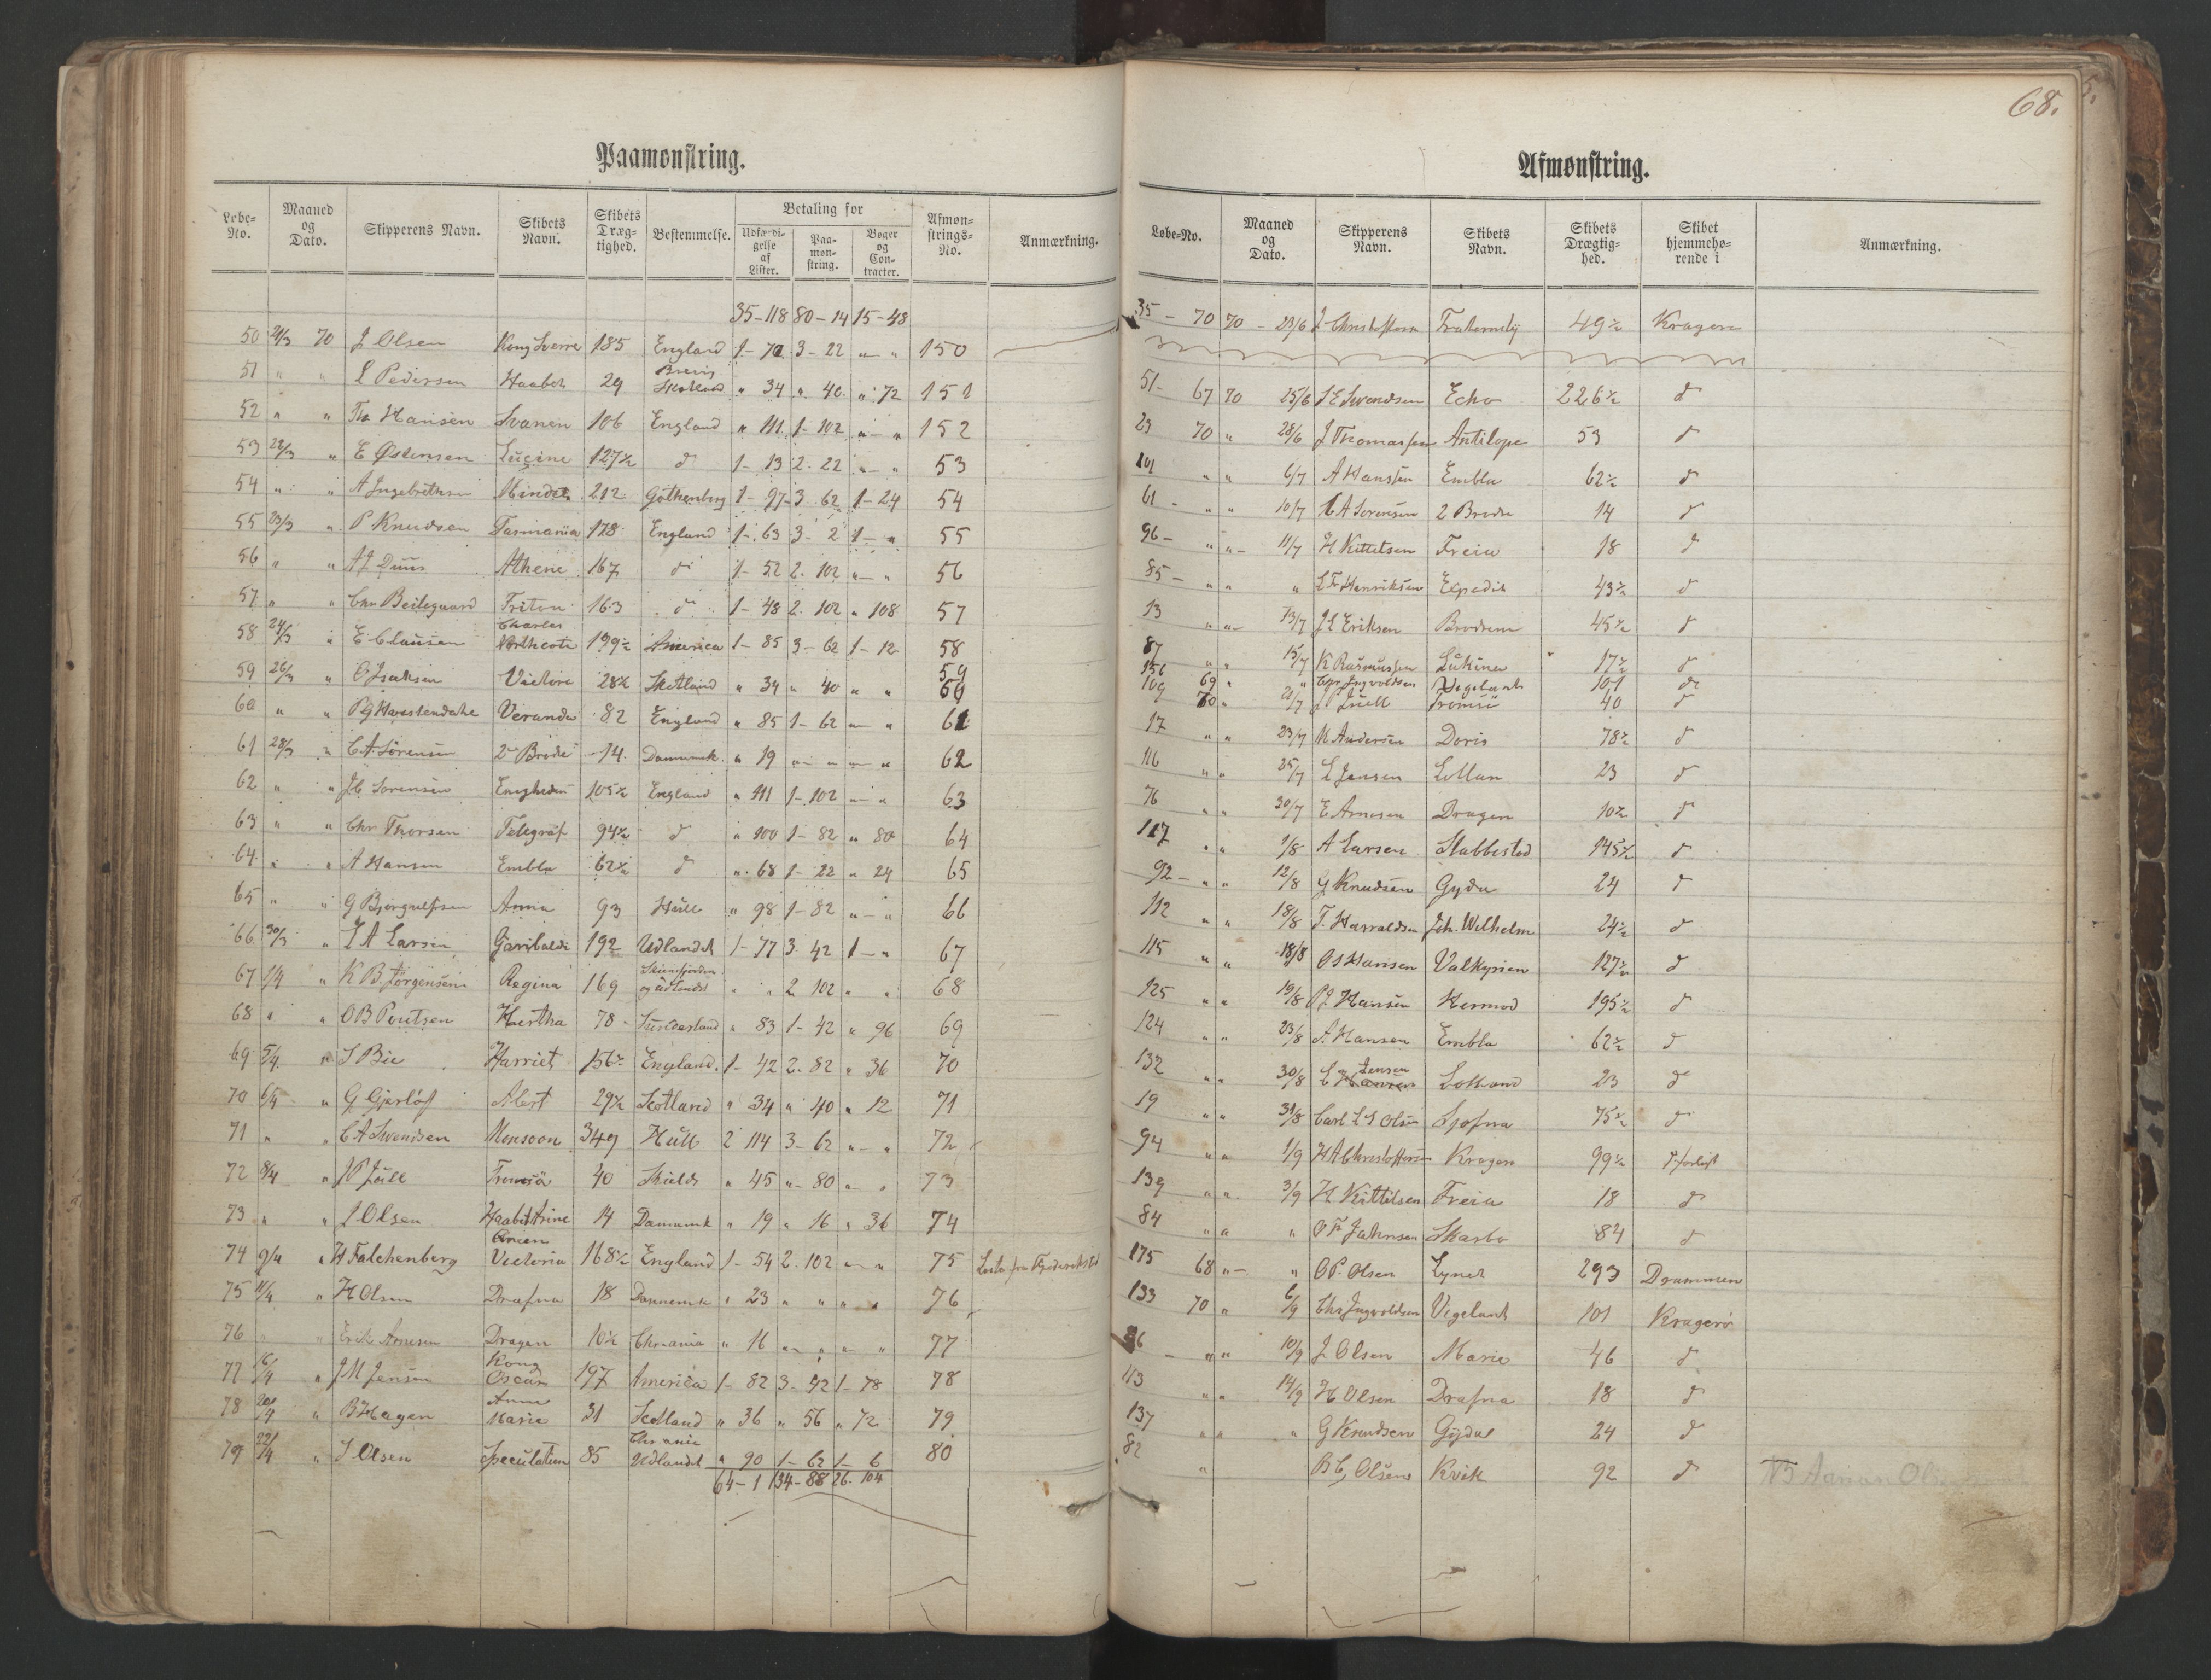 68.
Paamønstring.
Løbe-No. Maaned og Dato. Skipperens Navn. Skibets Navn. Skibets Dræg-tighed. Bestemmelse. Betaling for Udfærdi-gelse af Lister. Paa-møn-string. Bøger og Con-tracter. Afmøn-strings-No. Anmærkning.
35-118 80-14 15-48
50 21/3 70 J Olsen Kong Sverre 185 England 1- 72 3- 22 "- " 150
51 " " L Pedersen Haabet 29 Brevig Skotland " 34 " 40 " 72 151
52 " " Th Hansen Svanen 106 England " 111 1- 102 "- " 152
53 22/3 " E Østensen Lucine 127½ d 1- 13 2. 22 "- " 53
54 " " A Ingebrethsen Mindet 212 Gothenborg 1- 97 3- 62 1- 24 54
55 23/3 " P Knudsen Tasmania 178 England 1- 63 3- 2 1- " 55
56 " " A J Duus Athene 167 do 1- 52 2. 102 "- " 56
57 " " Chr Beilegaard Triton 163 do 1- 48 2. 102 " 108 57
58 24/3 " E Clausen Charles 199½ America 1- 85 3- 62 1- 12 58
59 26/3 " O Isaksen Victoria 28½ Skotland " 34 " 40 " " 59 60
60 " " Veranda 82 England " 85 1- 62 "- " 61
61 28/3 " C A Sørensen 2de Brødre 14 Danmark " 19 "- " "- " 62
62 " " Sørensen Enigheden 105½ England " 111 1- 102 "- " 63
63 " " Chr Thorsen Telegraf 94½ d " 100 1- 82 " 80 64
64 " " A Hansen Embla 62½ d " 68 1- 22 " 24 65
65 " " G Bjørgulfsen Anna 93 Hull " 98 1- 82 "- " 66
66 30/3 " A Larsen Garibaldi 192 Udlandet 1- 77 3 42 1- " 67
67 1/4 " K B Jörgensen Regina 169 Skiensfjorden og Udlandet " " 2 102 " " 68
68 " " O B Pentsen Hertha 78 Sunderland " 83 1- 42 " 96 69
69 5/4 " S Bie Harriet 156½ England 1- 42 2. 82 " 36 70
70 6/4 " G Gjerløf Alert 29½ Scotland " 34 " 40 " 12 71
71 " " C A Svendsen Monsoon 349 Hull 2 114 3- 62 "- " 72
72 8/4 " J P Juell Tromsö 40 Shields " 45 "- 80 " " 73
73 " " J Olsen Haabet Arine 14 Danmark " 19 " 16 " 36 74
74 9/4 " H Falchenberg Queen Victoria 168½ England 1- 54 2. 102 "- " 75 Liste fra Frederikstad
75 11/4 " H Olsen Drafna 18 Dannemk " 23 " " " " 76
76 " " Erik Arnesen Dragen 10½ Chrania " 16 "- " " " 77
77 16/4 " J M Jensen Kong Oscar 197 America 1- 82 3- 42 1- 78 78
78 20/4 " B Hagen Anne Marie 31 Scotland " 36 " 56 " 72 79
79 22/4 " S Olsen Speculation 85 Chrania Udlandet " 90 1- 62 1- 6 80
64- 1 134- 88 26. 104
Afmønstring.
Løbe-No. Maaned og Dato. Skipperens Navn. Skibets Navn. Skibets Drægtig-hed. Skibet hjemmehø-rende i Anmærkning.
35 - 70 70 - 23/6 J Christoffersen Fraternity 49½ Kragerø
51- 67 70 25/6 S E Svendsen Echo 226½ d
23 70 " 28/6 J Thomassen Antilope 53 d
101 " " 6/7 A Hansen Embla 62½ d
61 - " " 10/7 C A Sørensen 2 Brødre 14 d
96 - " "- 11/7 H Kittelsen Freia 18 d
85 - " " " L Fr Henriksen Expedit 43½ d
13 " "- 13/7 J L Eriksen Brødrene 45½ d
87 " " 15/7 K Rasmussen Lükina 17½ d
156 69 " " Chr Ingvoldsen Vigeland 101 do
109 70 " 21/7 J P Juell Tromsö 40 d
17 " " 23/7 M Andersen Doris 78½ d
116 " " 25/7 L Jensen 23 d
76 " " 30/7 E Arnesen Dragen 10½ d
117 " " 1/8 A Larsen Stabbestad 145½ d
92 - " " 12/8 G Knudsen Gyda 24 d
112 " " 18/8 T. Harraldsen Joh. Wilhelm 24½ d
115 " " 18/8 O S Hansen Valkyrien 127½ d
125 " " 19/8 P J Hansen Hermod 195½ d
124 " " 23/8 A. Hansen Embla 62½ d
132 " " 30/8 L Jensen 23 d
19 " " 31/8 Carl L S Olsen Sjofna 75½ d
94 " " 1/9 H A Christoffersen Kragerø 99½ d forlist
139 " " 3/9 H Kittelsen Freia 18 d
84 " " " O Fr Jahnsen Skarbo 84 d
175 68 "- " O P. Olsen Lynet 293 Drammen
133 70 " 6/9 Chr Ingvoldsen Vigeland 101 Kragerø
86 - " " 10/9 J Olsen Marie 46 d
113 " " 14/9 H Olsen Drafna 18 d
137 " " " G Knudsen Gyda 24 d
82 " B C, Olsen Kvik 92 d NB Aanon Ols